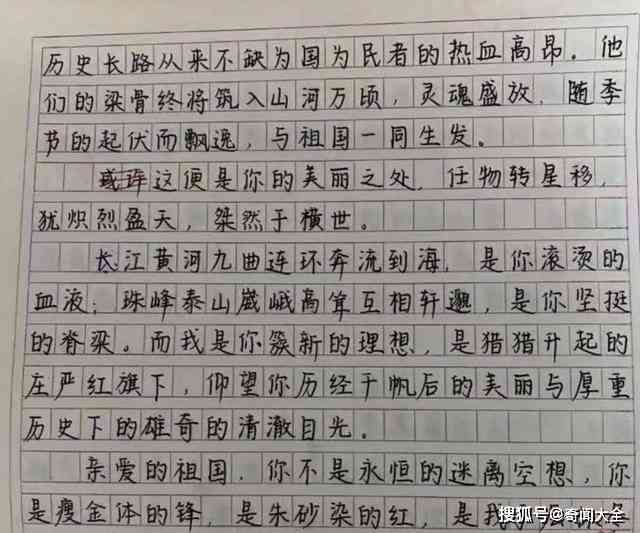 历史长路从来不缺为国为民者的热血高昂。他
们的梁骨终将筑入山河万顷，灵魂盛放，随季
节的起伏而飘逸，与祖国一同生发。
或许这便是你的美丽之处，任物转星移，
犹炽烈盈天，桀然于横世。
长江黄河九曲连环奔流到海，是你滚烫的
血液；珠峰泰山崴岷高耸互相轩邈，是你坚挺
的脊梁。而我是你簇新的理想，是猎猎升起的
庄严红旗下，仰望你历经千帆后的美丽与厚重
历史下的雄奇的清澈目光。
亲爱的祖国，你不是永恒的迷离空想，你
是瘦金体的锋，是朱砂染的红，是我
搜狐号@奇闻大全